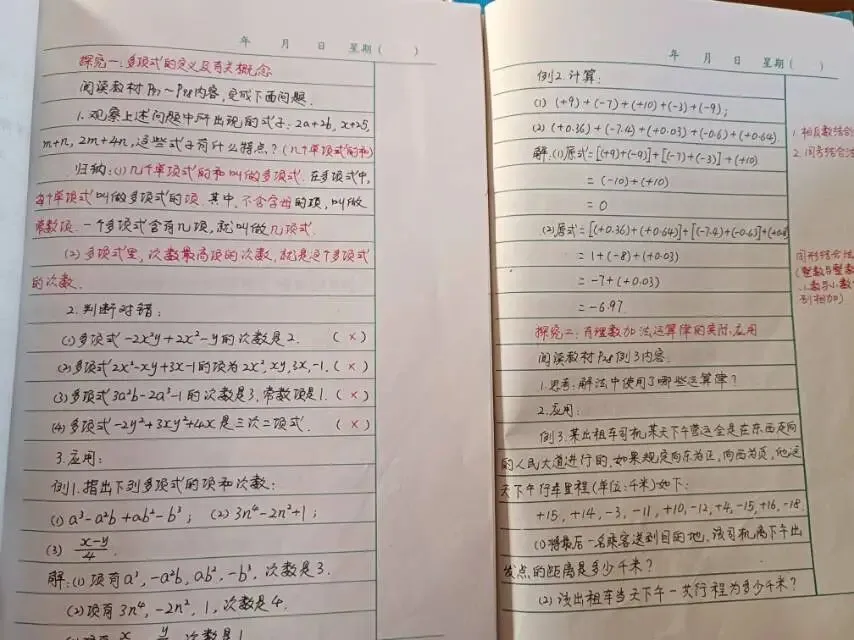 年 月 日 星期( )
探究一:多项式的定义及有关概念
阅读教材P57~P58内容,完成下面问题.
1.观察上述问题中所出现的式子:2a+2b, x+25,
m+n, 2m+4n,这些式子有什么特点?(几个单项式的和)
归纳:(1)几个单项式的和叫做多项式.在多项式中,
每个单项式叫做多项式的项.其中,不含字母的项,叫做
常数项.一个多项式含有几项,就叫做几项式.
(2)多项式里,次数最高项的次数,就是这个多项式
的次数.
2.判断对错:
(1)多项式-2x²y+2x²-y的次数是2. (×)
(2)多项式2x²-xy+3x-1的项为2x²,xy,3x,-1.(×)
(3)多项式3a²b-2a³-1的次数是3,常数项是1.(×)
(4)多项式-2y²+3xy²+4x是三次二项式. (×)
3.应用:
例1.指出下列多项式的项和次数:
(1) a³-a²b+ab²-b³; (2) 3n⁴-2n²+1;
(3) (x-y)/4.
解:(1)项有a³,-a²b,ab²,-b³,次数是3.
(2)项有3n⁴,-2n²,1,次数是4.
年 月 日 星期( )
例2.计算:
(1) (+9)+(-7)+(+10)+(-3)+(-9);
(2) (+0.36)+(-7.4)+(+0.03)+(-0.6)+(+0.64).
解:(1)原式=[(+9)+(-9)]+[(-7)+(-3)]+(+10)
=(-10)+(+10)
=0
(2)原式=[(+0.36)+(+0.64)]+[(-7.4)+(-0.6)]+(+0.
=1+(-8)+(+0.03)
=-7+(+0.03)
=-6.97.
探究二:有理数加法运算律的实际应用
阅读教材P28例3内容.
1.思考:解法中使用了哪些运算律?
2.应用:
例3.某出租车司机某天下午营运全是在东西走向
的人民大道进行的,如果规定向东为正,向西为负,他这
天下午行车里程(单位:千米)如下:
+15, +14, -3, -11, +10, -12, +4, -15, +16, -18.
(1)将最后一名乘客送到目的地,该司机离下午出
发点的距离是多少千米?
(2)该出租车当天下午一共行程为多少千米?
1.相反数结合
2.同号结合法
同形结合法
(整数与整数
小数与小数
别相加)